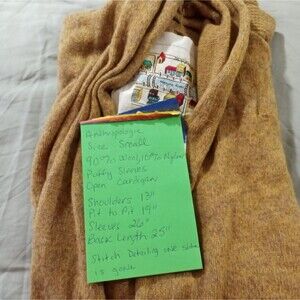 Anthropologie
Size Small
90% Wool, 10% Nylon
Puffy Sleeves
Open Cardigan
Shoulders 13"
Pit to Pit 19"
Sleeves 26"
Back Length 25"
Stitch Detailing one
is gone